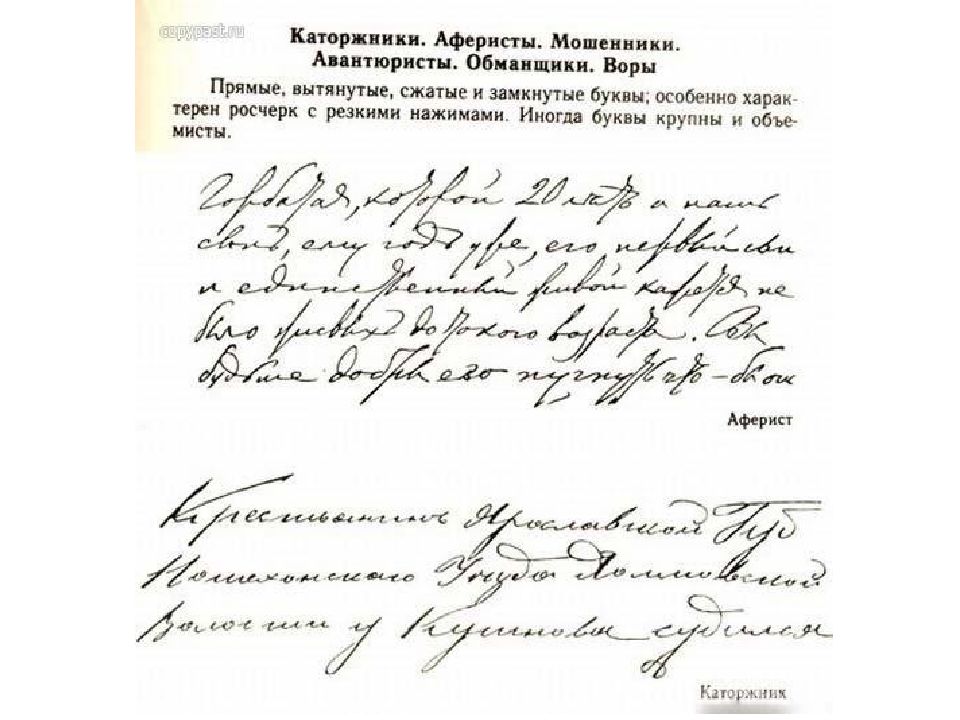 copypast.ru
Каторжники. Аферисты. Мошенники.
Авантюристы. Обманщики. Воры
Прямые, вытянутые, сжатые и замкнутые буквы; особенно харак-
терен росчерк с резкими нажимами. Иногда буквы крупны и объе-
мисты.
Горбатая, которой 20 летъ и нашъ
сынъ, ему годъ уже, его первый
и единственный живой не
было живыхъ до такого возраста.
добры его что-бы он
Аферист
Крестьянинъ Ярославской Губ
Пошехонского Уезда
Волости у судился
Каторжник